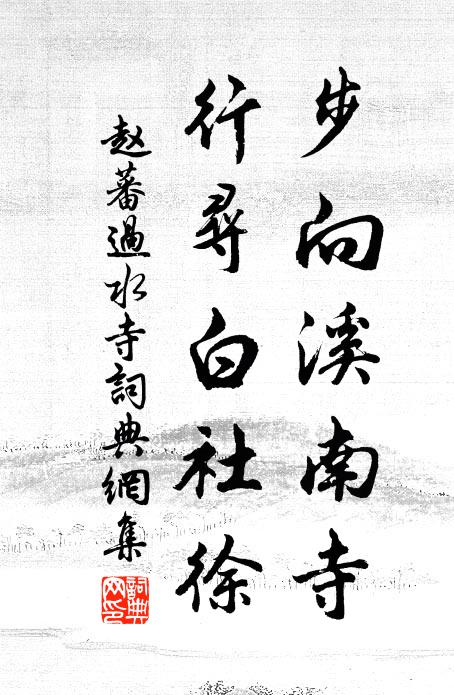 步向溪南寺
行寻白社徐
赵蕃過水寺詞典網集
詞典网印